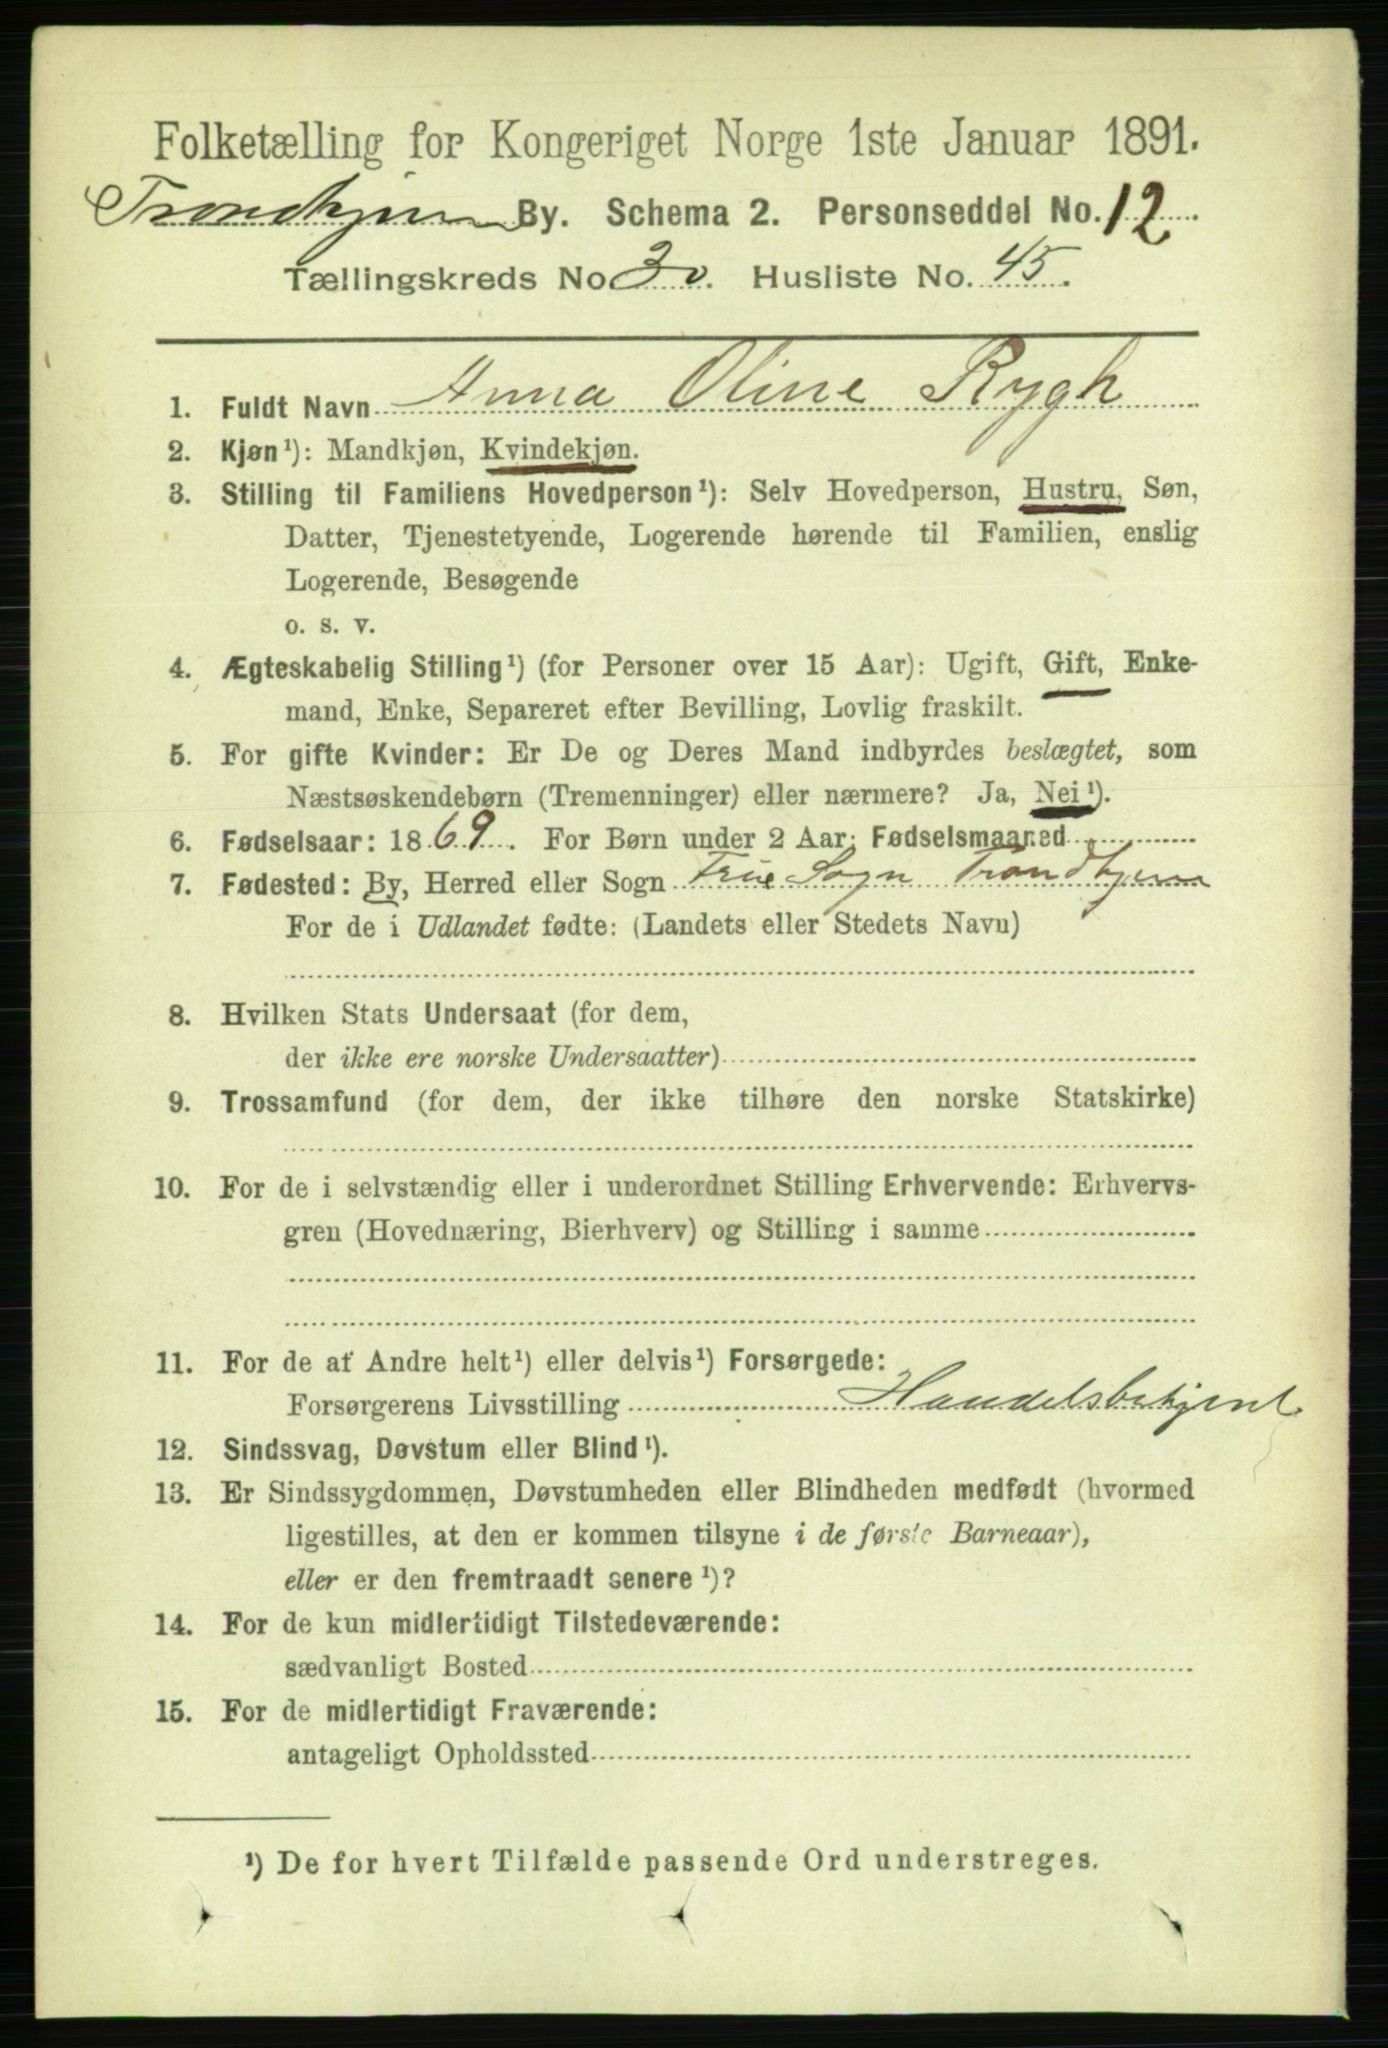 Folketælling for Kongeriget Norge 1ste Januar 1891.
Trondhjem By. Schema 2. Personseddel No. 12
Tællingskreds No 30. Husliste No. 45.
1. Fuldt Navn Anna Oline Rygh
2. Kjøn¹): Mandkjøn, Kvindekjøn.
3. Stilling til Familiens Hovedperson¹): Selv Hovedperson, Hustru, Søn,
Datter, Tjenestetyende, Logerende hørende til Familien, enslig
Logerende, Besøgende
o. s. v.
4. Ægteskabelig Stilling¹) (for Personer over 15 Aar): Ugift, Gift, Enke-
mand, Enke, Separeret efter Bevilling, Lovlig fraskilt.
5. For gifte Kvinder: Er De og Deres Mand indbyrdes beslægtet, som
Næstsøskendebørn (Tremenninger) eller nærmere? Ja, Nei¹).
6. Fødselsaar: 1869. For Børn under 2 Aar: Fødselsmaaned
7. Fødested: By, Herred eller Sogn Frue Sogn Trondhjem
For de i Udlandet fødte: (Landets eller Stedets Navn)
8. Hvilken Stats Undersaat (for dem,
der ikke ere norske Undersaatter)
9. Trossamfund (for dem, der ikke tilhøre den norske Statskirke)
10. For de i selvstændig eller i underordnet Stilling Erhvervende: Erhvervs-
gren (Hovednæring, Bierhverv) og Stilling i samme
11. For de af Andre helt¹) eller delvis¹) Forsørgede:
Forsørgerens Livsstilling Handelsbetjent
12. Sindssvag, Døvstum eller Blind¹).
13. Er Sindssygdommen, Døvstumheden eller Blindheden medfødt (hvormed
ligestilles, at den er kommen tilsyne i de første Barneaar),
eller er den fremtraadt senere¹)?
14. For de kun midlertidigt Tilstedeværende:
sædvanligt Bosted
15. For de midlertidigt Fraværende:
antageligt Opholdssted
¹) De for hvert Tilfælde passende Ord understreges.